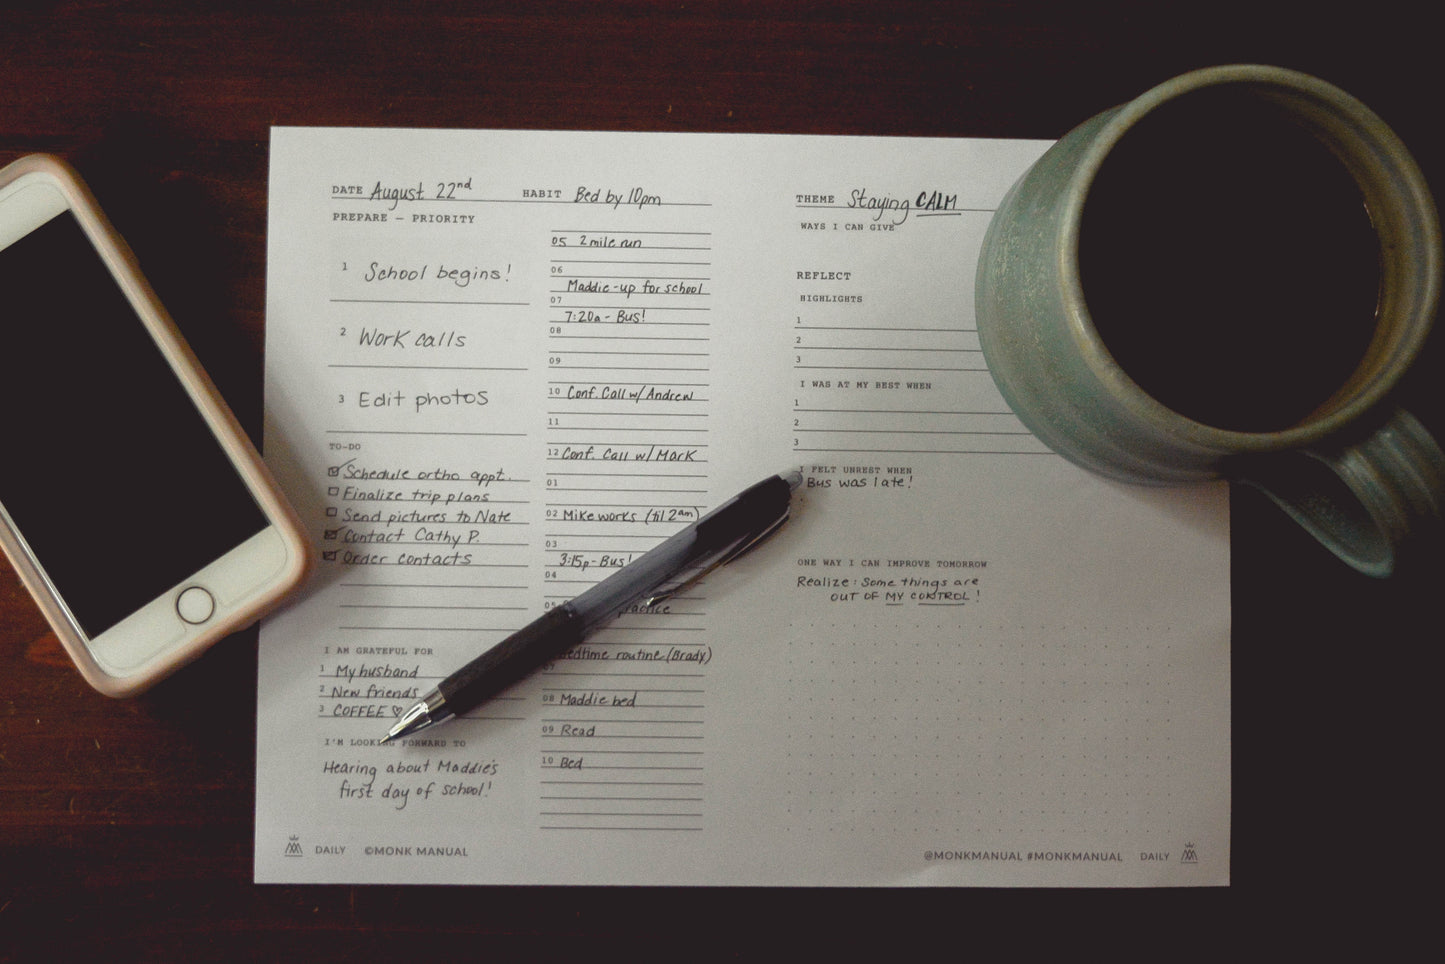 DATE August 22nd
HABIT Bed by 10pm
PREPARE — PRIORITY
1 School begins!
2 Work calls
3 Edit photos
TO-DO
Schedule ortho appt.
Finalize trip plans
Send pictures to Nate
Contact Cathy P.
Order contacts
I AM GRATEFUL FOR
1 My husband
2 New friends
3 COFFEE ♡
I'M LOOKING FORWARD TO
Hearing about Maddie's
first day of school!
05 2 mile run
06
Maddie - up for school
07
7:20a - Bus!
08
09
10 Conf. Call w/ Andrew
11
12 Conf. Call w/ Mark
01
02 Mike works (til 2am)
03
3:15p - Bus!
04
05
routine (Brady)
07
08 Maddie bed
09 Read
10 Bed
THEME Staying CALM
WAYS I CAN GIVE
REFLECT
HIGHLIGHTS
1
2
3
I WAS AT MY BEST WHEN
1
2
3
I FELT UNREST WHEN
Bus was late!
ONE WAY I CAN IMPROVE TOMORROW
Realize: Some things are
OUT OF MY CONTROL!
DAILY ©MONK MANUAL
@MONKMANUAL #MONKMANUAL DAILY